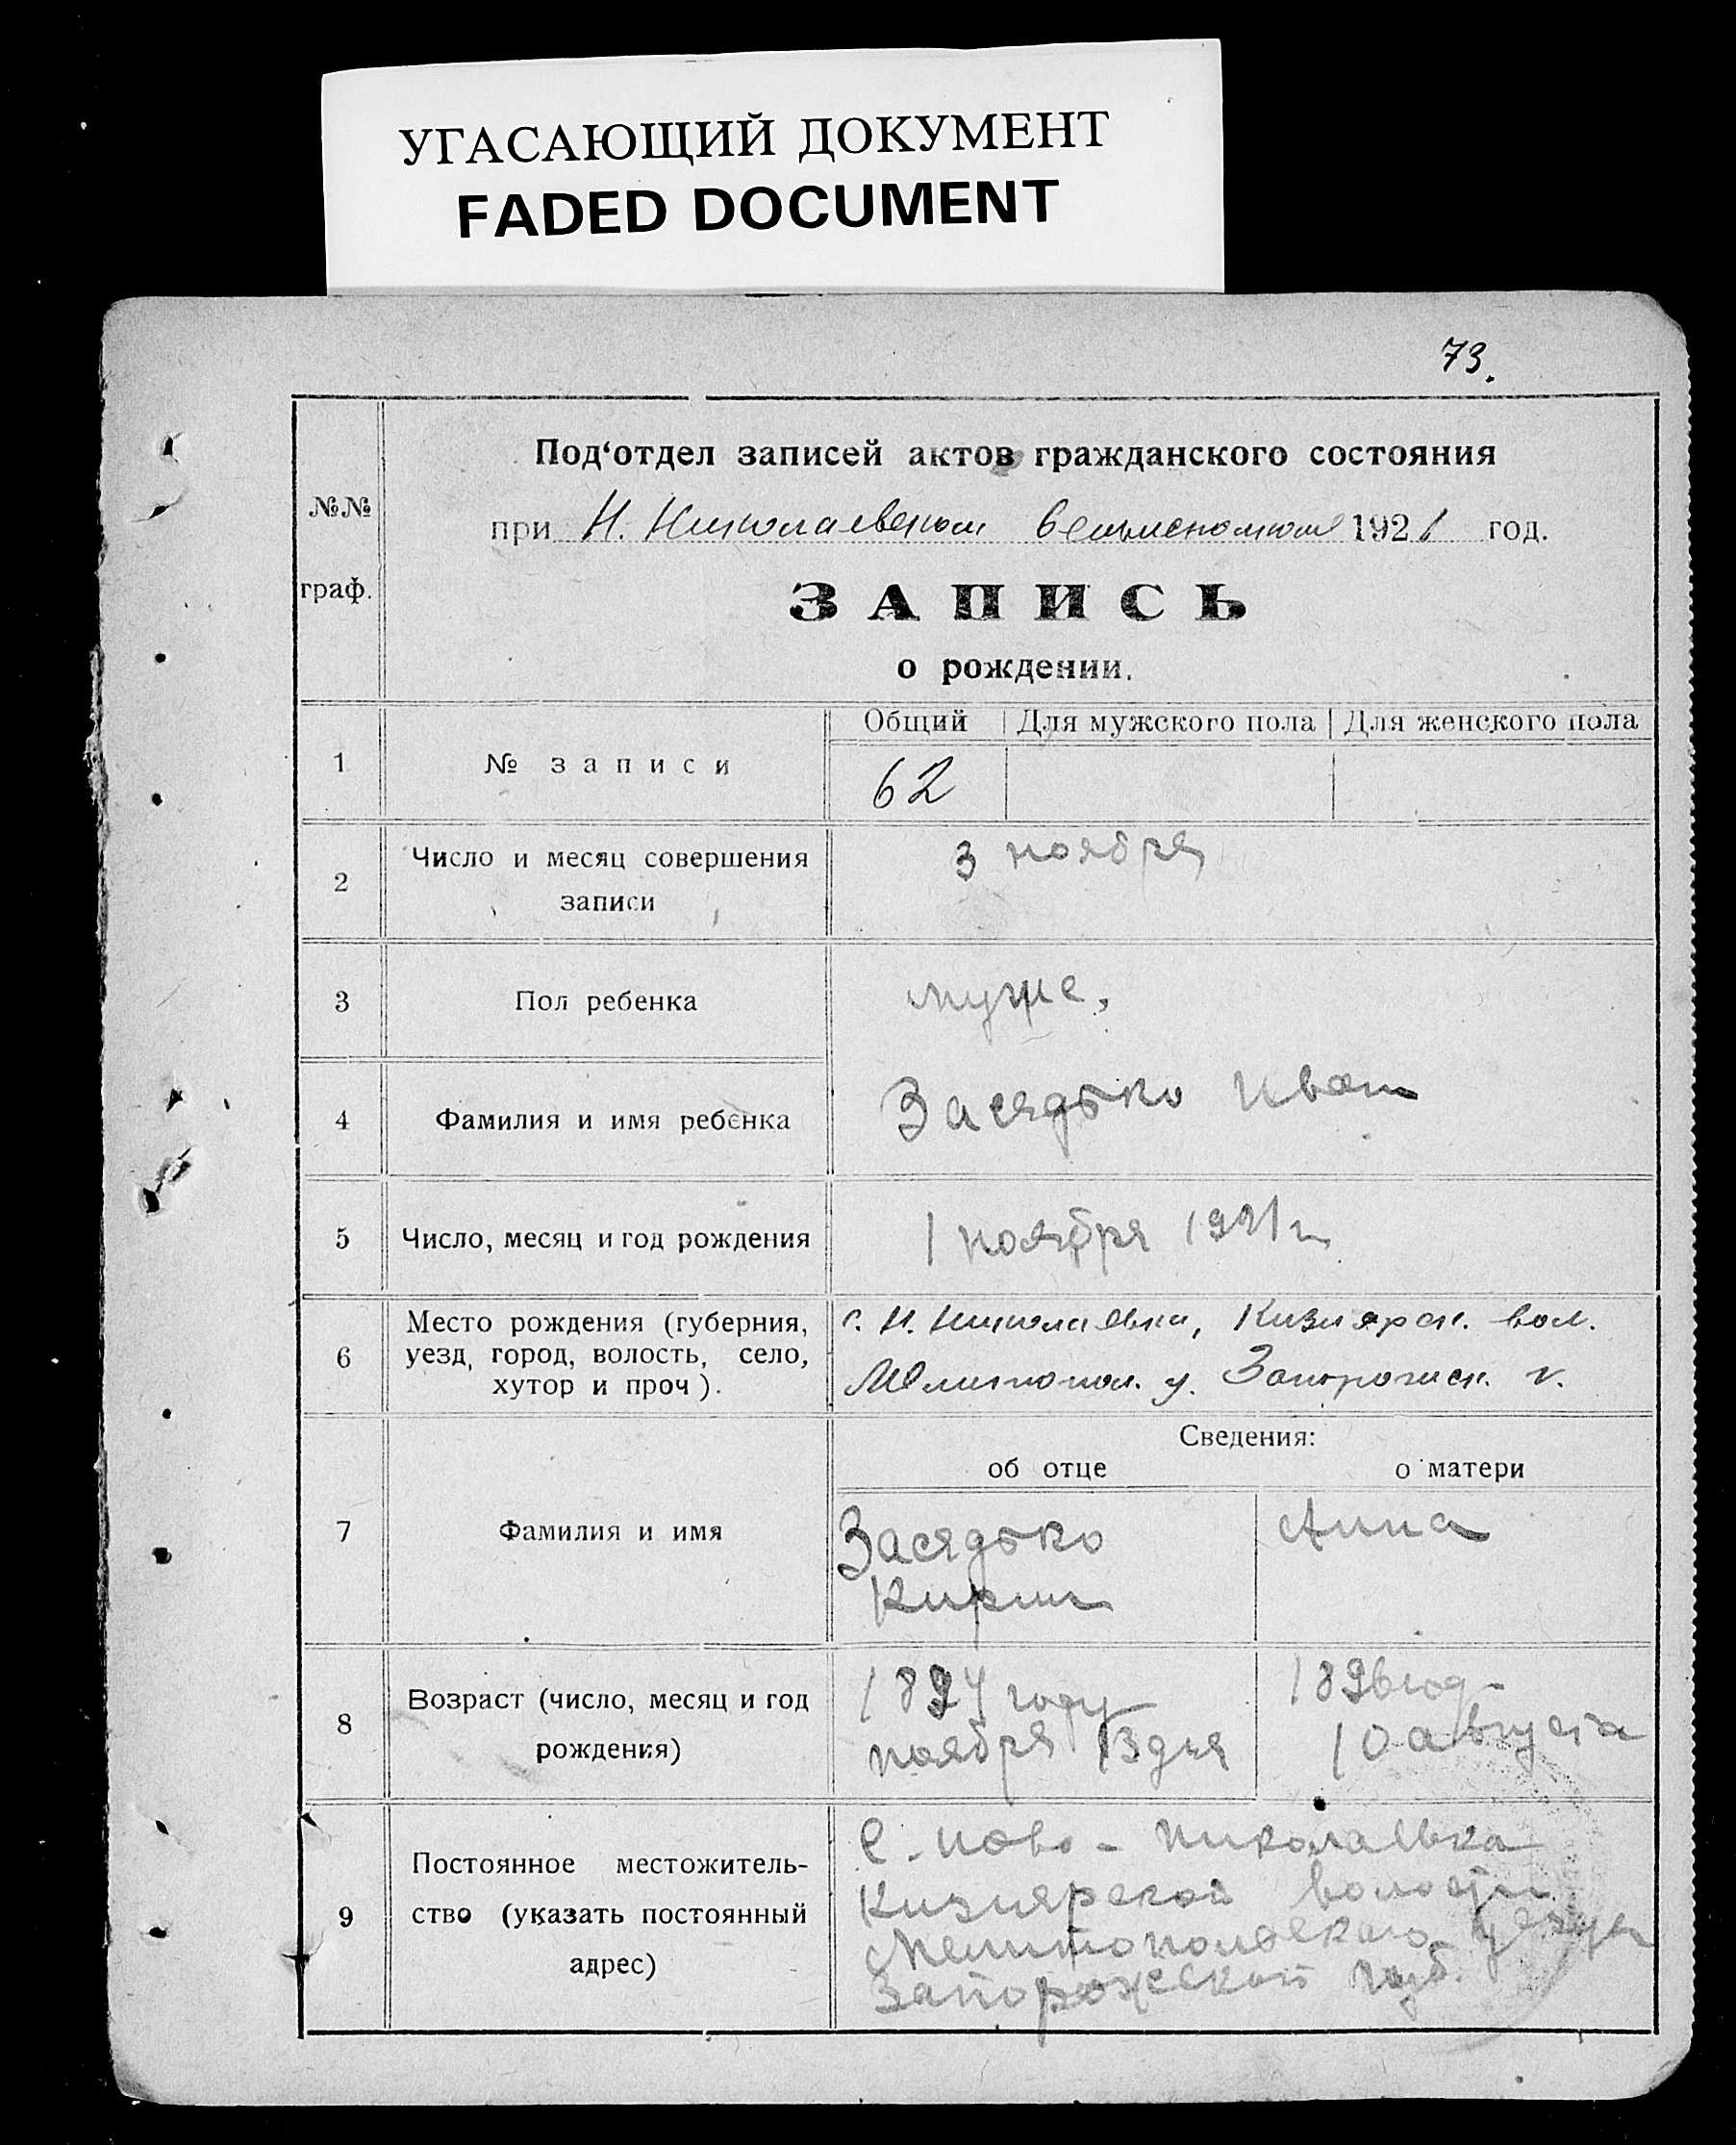 УГАСАЮЩИЙ ДОКУМЕНТ
FADED DOCUMENT
73.
№№
граф.
Под‘отдел записей актов гражданского состояния
при Н. Николаевском 1921 год.
ЗАПИСЬ
о рождении.
1
№ записи
Общий
Для мужского пола
Для женского пола
62
2
Число и месяц совершения
записи
3 ноября
3
Пол ребенка
муже,
4
Фамилия и имя ребенка
Засядько Иван
5
Число, месяц и год рождения
1 ноября 1921 г.
6
Место рождения (губерния,
уезд, город, волость, село,
хутор и проч).
с. Н. Николаевка, Кизиярск. вол.
Мелитопол. у. Запорожск. г.
7
Фамилия и имя
Сведения:
об отце
о матери
Засядько
Кирил
Анна
8
Возраст (число, месяц и год
рождения)
году
ноября 13 дня
1896 год
10 августа
9
Постоянное местожитель-
ство (указать постоянный
адрес)
С. Ново-Николаевка
Кизиярской волости
Мелитопольского уезда
Запорожской губ.